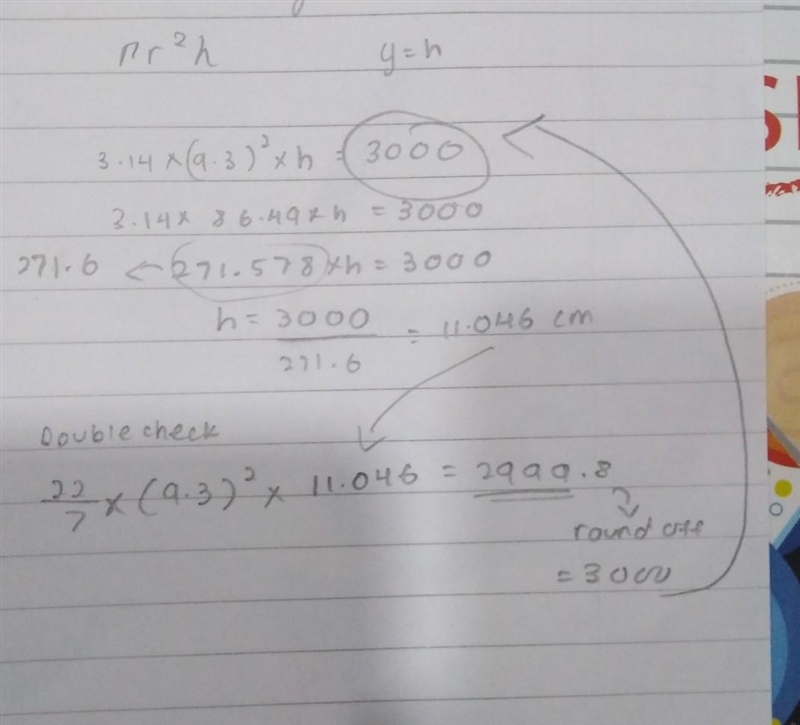 πr²h y=h
3.14×(9.3)²×h = 3000
3.14× 86.49×h = 3000
271.6 ← 271.578×h = 3000
h = 3000/271.6 = 11.046 cm
Double check
22/7 × (9.3)² × 11.046 = 2999.8
round off
= 3000